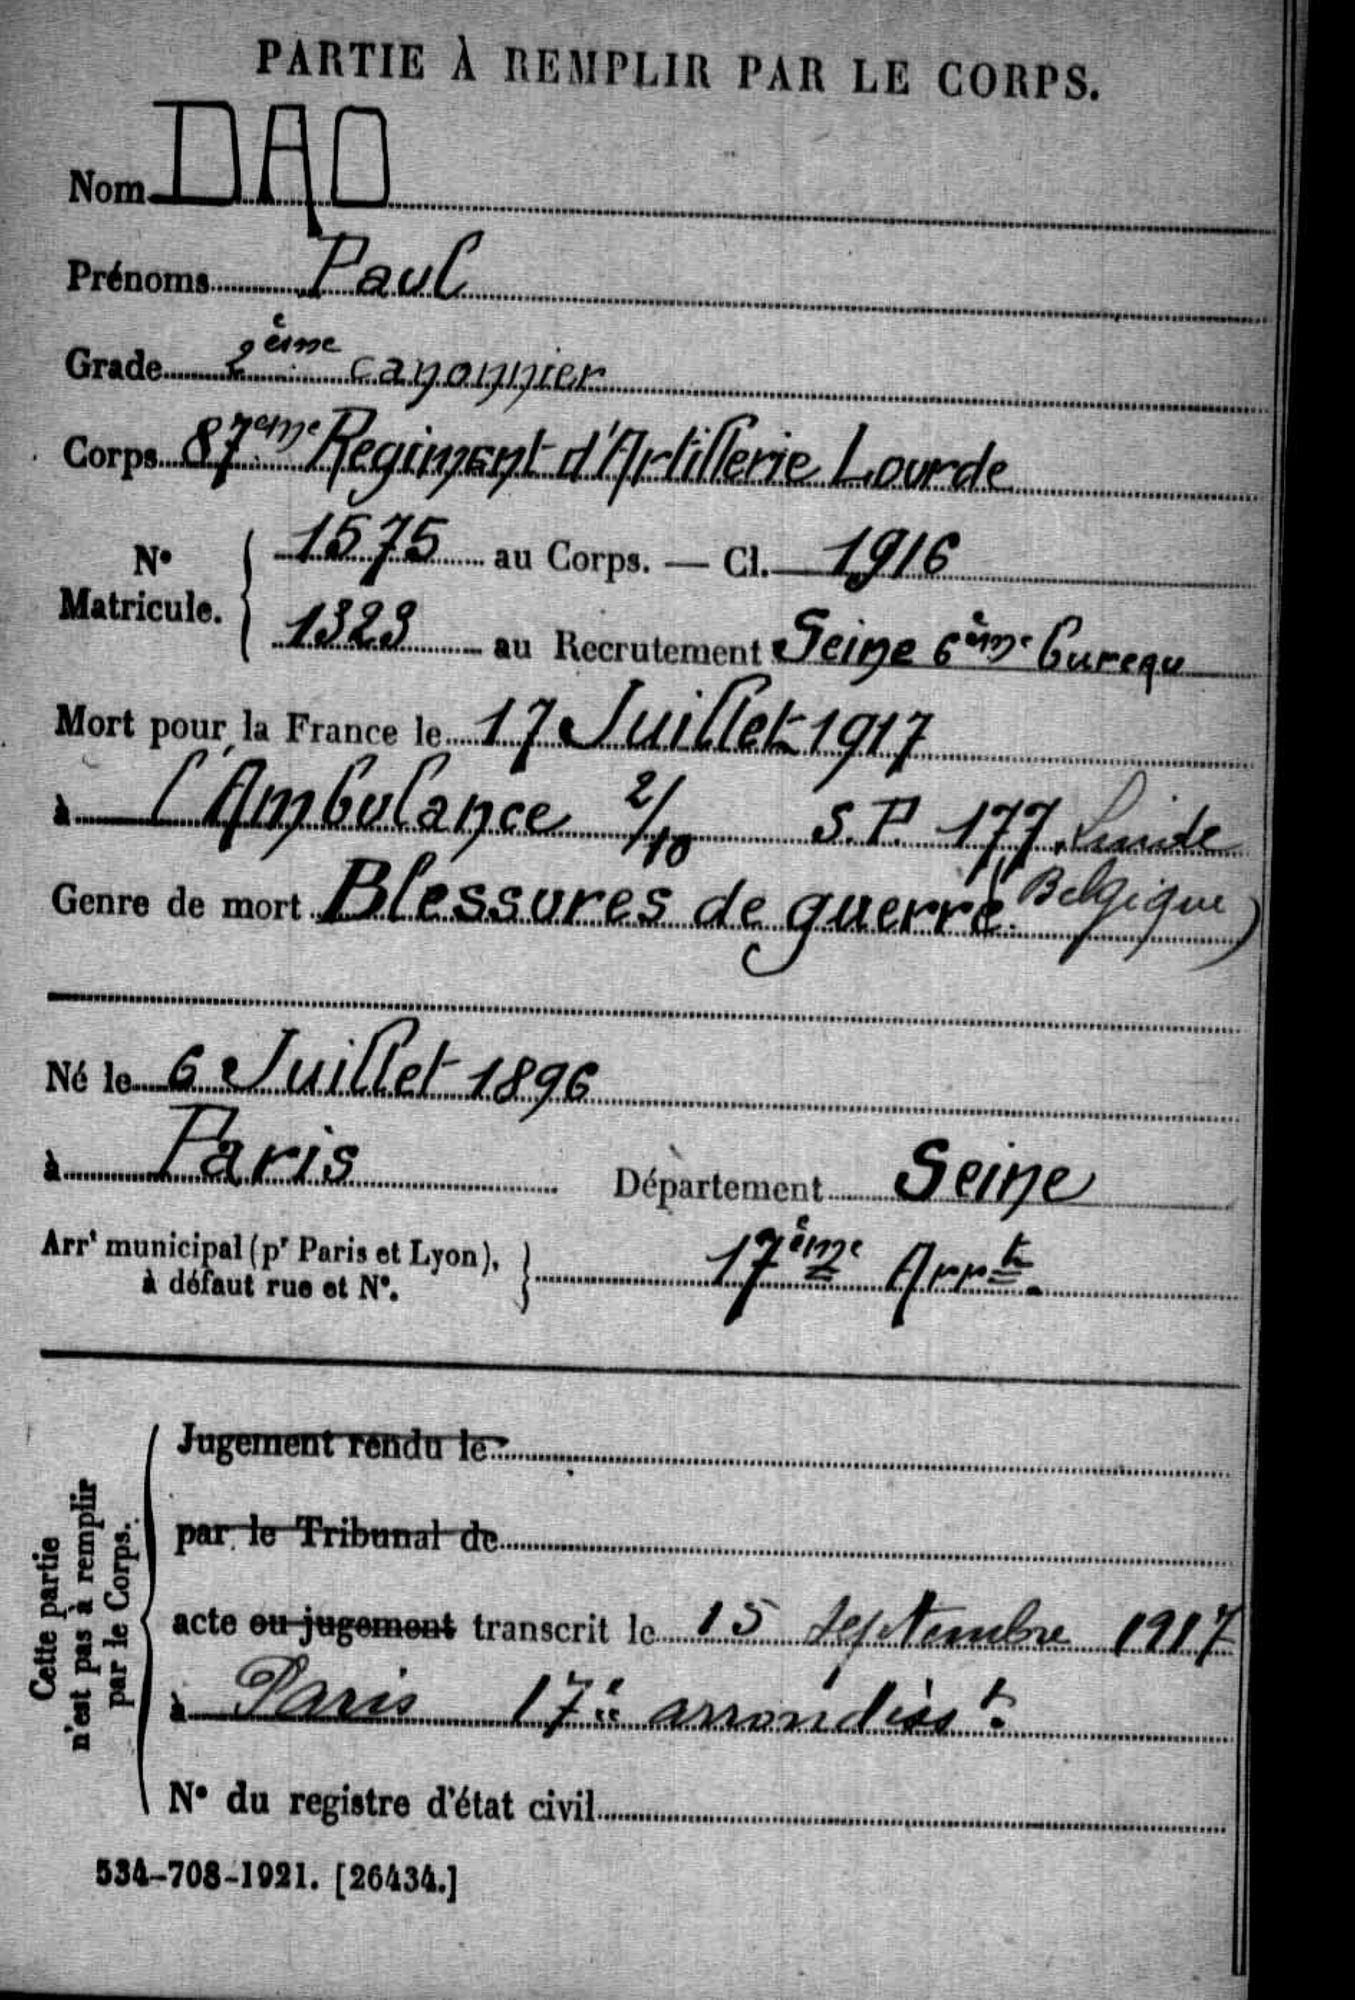 PARTIE À REMPLIR PAR LE CORPS.
Nom DAO
Prénoms Paul
Grade 2ème canonnier
Corps 87eme Regiment d'Artillerie Lourde
N° Matricule. { 1575 au Corps. — Cl. 1916
1323 au Recrutement Seine 6ème bureau
Mort pour la France le 17 Juillet 1917
à l'Ambulance 2/10 S.P. 177.
Genre de mort Blessures de guerre. Belgique)
Né le 6 Juillet 1896
à Paris Département Seine
Arrt municipal (pr Paris et Lyon), à défaut rue et N°. } 17ème Arrt.
Cette partie n'est pas à remplir par le Corps.
Jugement rendu le
par le Tribunal de
acte ou jugement transcrit le 15 septembre 1917
à Paris 17e arrondisst.
N° du registre d'état civil
534-708-1921. [26434.]